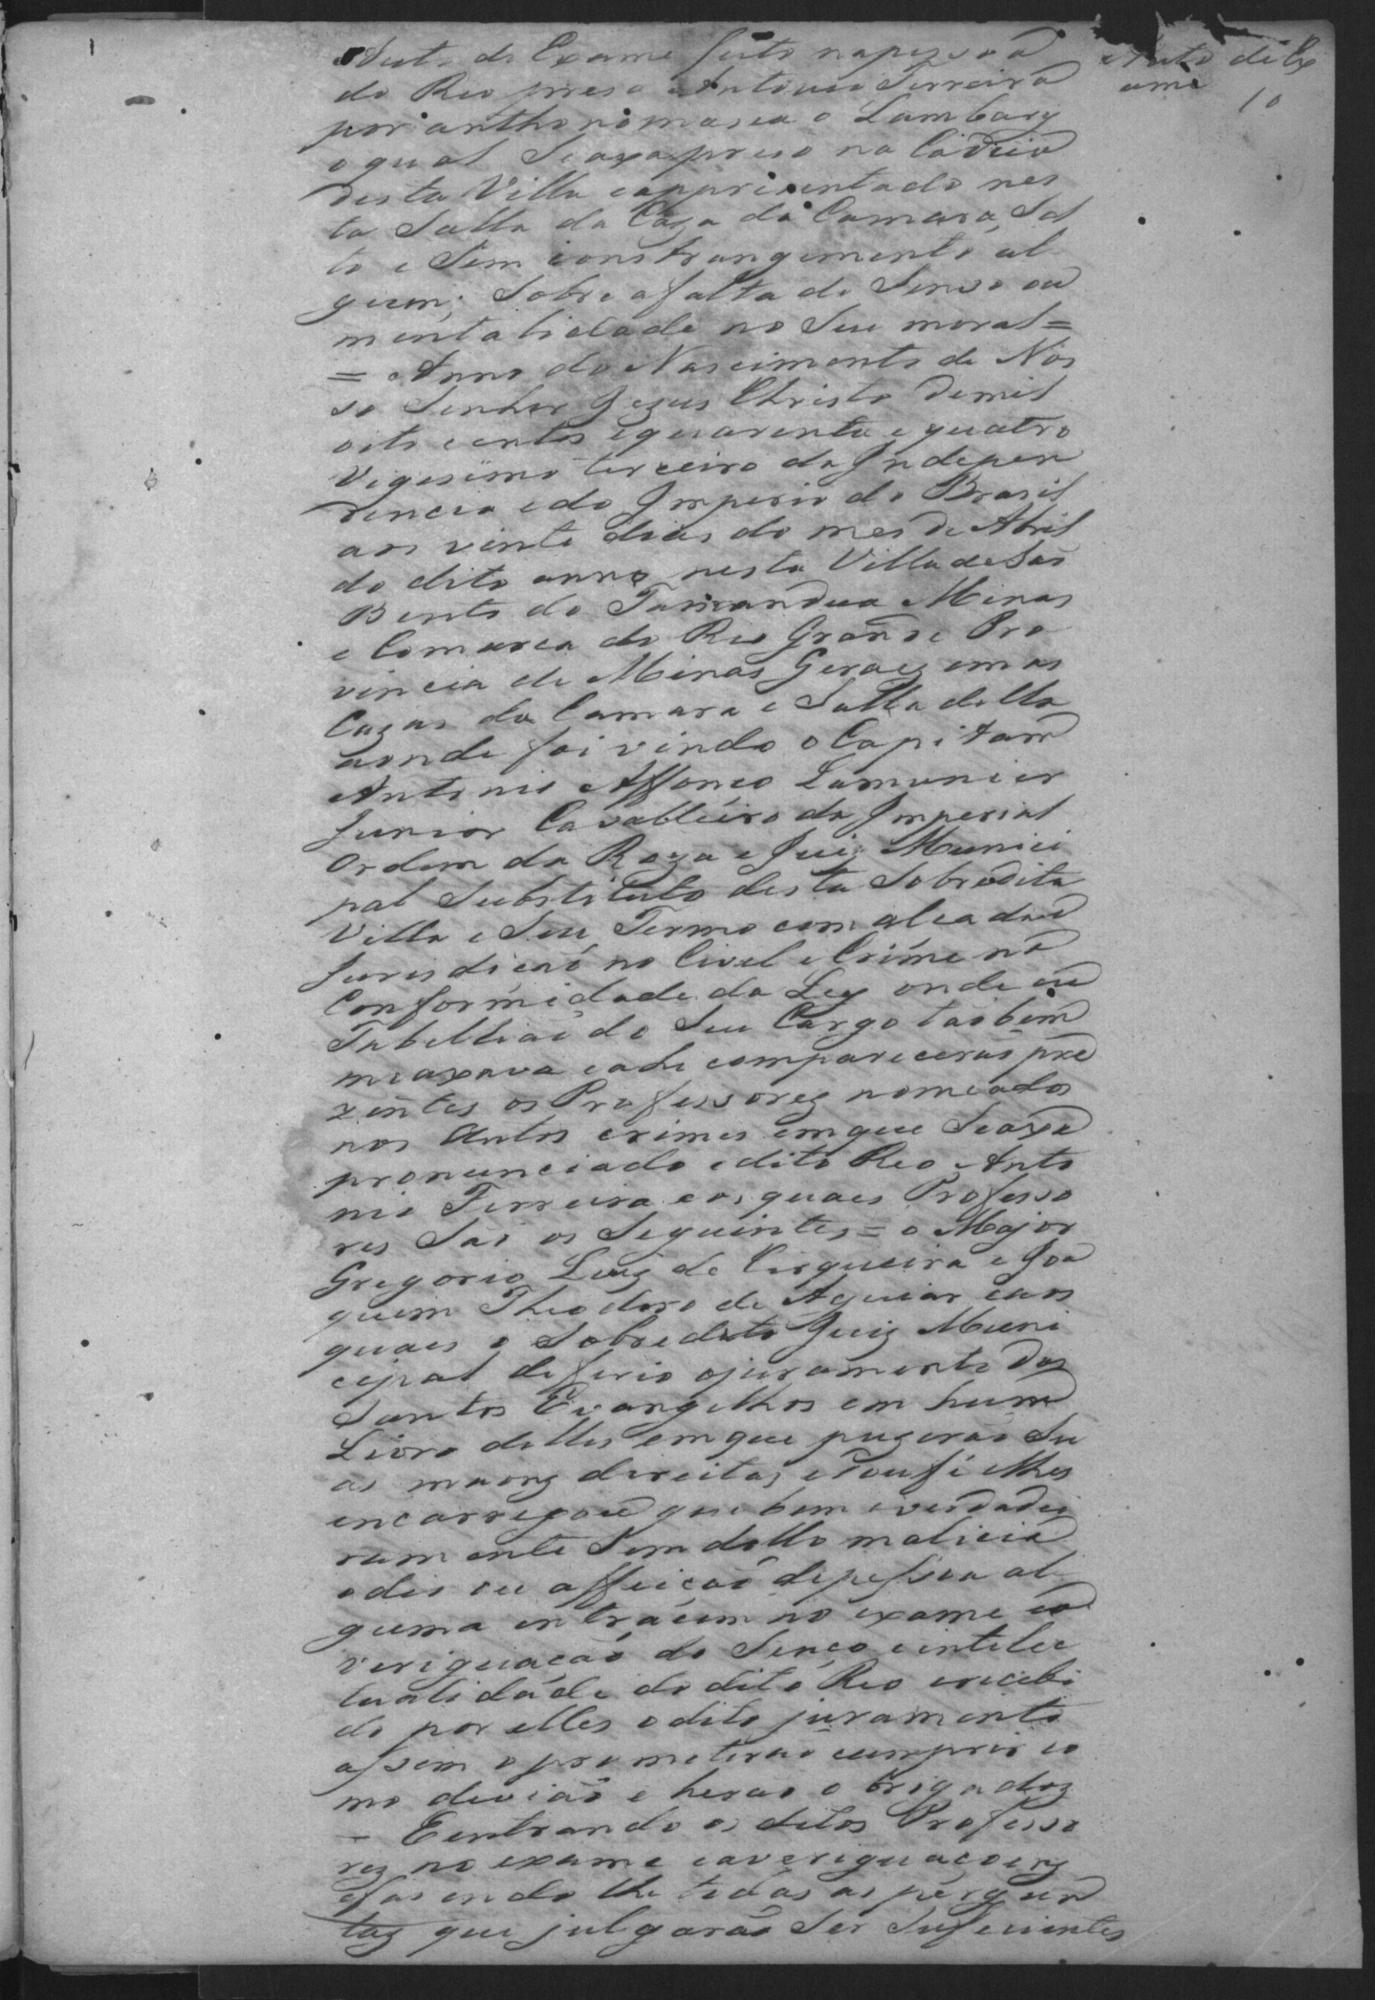 Auto de Exame feito napessoa
do Reo preso Antonio Ferreira
por anthonomasia o Lambary
oqual Seaxa preso na Cadeia
desta Villa eapprizentado nes
ta Salla da Caza da Camara, Sol
to e Sem constrangimento al
gum; Sobre afalta de Senso ou
mentalidade no Seu moral =
= Anno do Nascimento de Nos
so Senhor Jezus Christo demil
oito centos equarenta e quatro
Vigesimo terceiro da Indepen
dencia edo Imperio do Brazil
aos vinte dias do mes de Abril
do dito anno nesta Villa de Sao
Bento do Tamandua Minas
e Comarca do Rio Grande Pro
vincia de Minas Geraes em as
Cazas da Camara e Salla della
aonde foi vindo o Capitam
Antonio Affonço Lamunier
Junior Cavalleiro da Imperial
Ordem da Roza e Juiz Munici
pal Substituto desta Sobredita
Villa e Seu Termo com alçada e
Jurisdiçaó no Civel e Crime na
Conformidade da Ley onde eu
Tabelliaó do Seu Cargo taobem
meaxava eahi compareceraó pre
zentes os Professorez nomeados
nos Autos crimes emque Seaxa
pronunciado edito Reo Anto
nio Ferreira eos quaes Professo
res Saó os Seguintes = o Major
Gregorio Luiz de Cirqueira e Joa
quim Theodoro de Aguiar eaos
quaes o Sobredito Juiz Muni
cipal deferio ojuramento dos
Santos Evangelhos em hum
Livro delles emque puzeraó Su
as maons direitas, edoufé elhes
encarregou que bem everdadei
ramente Sem dollo malicia
odio ou affeiçaó depessoa al
guma entrácem no exame ea
veriguaçaó do Senço eintelec
tualidade do dito Reo erecebi
do por elles odito juramento
assim oprometeraó cumprir co
mo deviaó e heraó obrigados
– Eentrando os ditos Professo
rez no exame eaveriguaçoenz
efasendo lhe todas as pergun
taz que julgaraó Ser Suficientes
Auto de Ex
ame
10